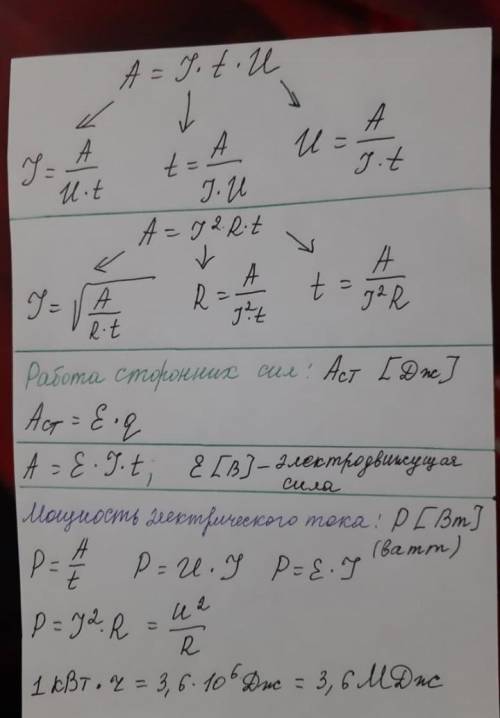 A = I · t · U
I = A / (U · t)    t = A / (I · U)    U = A / (I · t)
A = I² · R · t
I = √(A / (R · t))    R = A / (I² · t)    t = A / (I² R)
Работа сторонних сил: Aст [Дж]
Aст = Ɛ · q
A = Ɛ · I · t; Ɛ [В] – электродвижущая
сила
Мощность электрического тока: P [Вт]
(ватт)
P = A / t    P = U · I    P = Ɛ · I
P = I² · R = U² / R
1 кВт · ч = 3,6 · 10⁶ Дж = 3,6 МДж